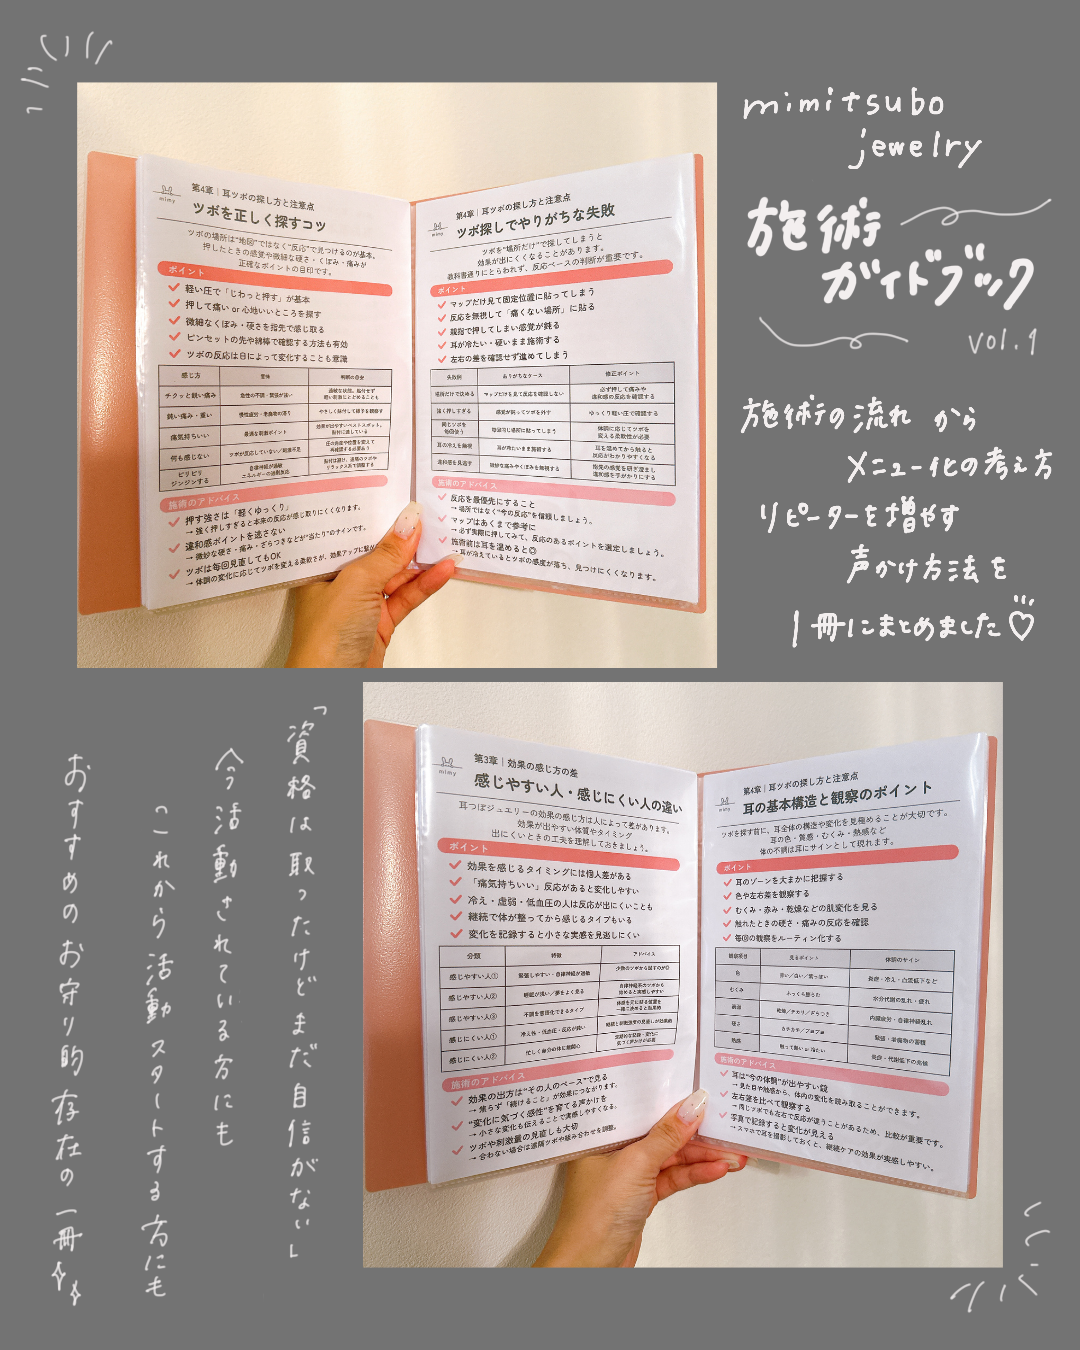 mimitsubo
jewelry
施術
ガイドブック
vol.1
施術の流れ から
メニュー化の考え方
リピーターを増やす
声かけ方法を
1冊にまとめました♡
mimy
第4章｜耳ツボの探し方と注意点
ツボを正しく探すコツ
ツボの場所は“地図”ではなく“反応”で見つけるのが基本。
押したときの感覚や微細な硬さ・くぼみ・痛みが
正確なポイントの目印です。
ポイント
軽い圧で「じわっと押す」が基本
押して痛い or 心地いいところを探す
微細なくぼみ・硬さを指先で感じ取る
ピンセットの先や綿棒で確認する方法も有効
ツボの反応は日によって変化することも意識
感じ方 意味 判断の目安
チクッと鋭い痛み 急性の不調・緊張が強い
鈍い痛み・重い 慢性疲労・老廃物の滞り やさしく貼付して様子を観察す
痛気持ちいい 最適な刺激ポイント 効果が出やすいベストスポット。
貼付に適している
何も感じない ツボが反応していない／刺激不足 圧の強度や位置を変えて
再確認する必要あり
ピリピリ
ジンジンする 自律神経が過敏
エネルギーの過剰反応
施術のアドバイス
押す強さは「軽くゆっくり」
→ 強く押しすぎると本来の反応が感じ取りにくくなります。
違和感ポイントを逃さない
→ 微妙な硬さ・痛み・ざらつきなどが“当たり”のサインです。
ツボは毎回見直してもOK
→ 体調の変化に応じてツボを変える柔軟さが、効果アップに繋が
mimy
第4章｜耳ツボの探し方と注意点
ツボ探しでやりがちな失敗
ツボを“場所だけ”で探してしまうと
効果が出にくくなることがあります。
教科書通りにとらわれず、反応ベースの判断が重要です。
ポイント
マップだけ見て固定位置に貼ってしまう
反応を無視して「痛くない場所」に貼る
親指で押してしまい感覚が鈍る
耳が冷たい・硬いまま施術する
左右の差を確認せず進めてしまう
失敗例 ありがちなケース 修正ポイント
場所だけで決める マップだけを見て反応を確認しない 必ず押して痛みや
違和感の反応を確認する
強く押しすぎる 感覚が鈍ってツボを外す ゆっくり軽い圧で確認する
同じツボを
毎回使う 毎回同じ場所に貼ってしまう 体調に応じてツボを
変える柔軟性が必要
耳の冷えを無視 耳が冷たいまま施術する 耳を温めてから触ると
反応がわかりやすくなる
違和感を見逃す 微妙な痛みやくぼみを無視する 指先の感覚を研ぎ澄まし
違和感を手がかりにする
施術のアドバイス
反応を最優先にすること
→ 場所ではなく“今の反応”を信頼しましょう。
マップはあくまで参考に
→ 必ず実際に押してみて、反応のあるポイントを選定しましょう。
施術前は耳を温めると◎
→ 耳が冷えているとツボの感度が落ち、見つけにくくなります。
「資格は取ったけどまだ自信がない」
今活動されている方にも
これから活動スタートする方にも
おすすめのお守り的存在の一冊
mimy
第3章｜効果の感じ方の差
感じやすい人・感じにくい人の違い
耳つぼジュエリーの効果の感じ方は人によって差があります。
効果が出やすい体質やタイミング
出にくいときの工夫を理解しておきましょう。
ポイント
効果を感じるタイミングには個人差がある
「痛気持ちいい」反応があると変化しやすい
冷え・虚弱・低血圧の人は反応が出にくいことも
継続で体が整ってから感じるタイプもいる
変化を記録すると小さな実感を見逃しにくい
分類 特徴 アドバイス
感じやすい人① 緊張しやすい・自律神経が過敏 少数のツボから試すのが◎
感じやすい人② 睡眠が浅い／夢をよく見る 自律神経系のツボから
始めると実感しやすい
感じやすい人③ 不調を言語化できるタイプ
感じにくい人① 冷え性・低血圧・反応が鈍い
感じにくい人② 忙しく自分の体に無関心
施術のアドバイス
効果の出方は“その人のペース”で見る
→ 焦らず「続けること」が効果につながります。
“変化に気づく感性”を育てる声かけを
→ 小さな変化も伝えることで実感しやすくなる。
ツボや刺激量の見直しも大切
→ 合わない場合は遠隔ツボや組み合わせを調整。
mimy
第4章｜耳ツボの探し方と注意点
耳の基本構造と観察のポイント
ツボを探す前に、耳全体の構造や変化を見極めることが大切です。
耳の色・質感・むくみ・熱感など
体の不調は耳にサインとして現れます。
ポイント
耳のゾーンを大まかに把握する
色や左右差を観察する
むくみ・赤み・乾燥などの肌変化を見る
触れたときの硬さ・痛みの反応を確認
毎回の観察をルーティン化する
観察項目 見るポイント 体調のサイン
色 赤い／白い／紫っぽい 炎症・冷え・血流低下など
むくみ ふっくら膨らむ 水分代謝の乱れ・疲れ
表面 乾燥／テカリ／ざらつき 内臓疲労・自律神経乱れ
硬さ カチカチ／ブヨブヨ 緊張・老廃物の蓄積
熱感 触って熱い or 冷たい 炎症・代謝低下の兆候
施術のアドバイス
耳は“今の体調”が出やすい鏡
→ 見た目や触感から、体内の変化を読み取ることができます。
左右差を比べて観察する
→ 同じツボでも左右で反応が違うことがあるため、比較が重要です。
写真で記録すると変化が見える
→ スマホで耳を撮影しておくと、継続ケアの効果が実感しやすい。